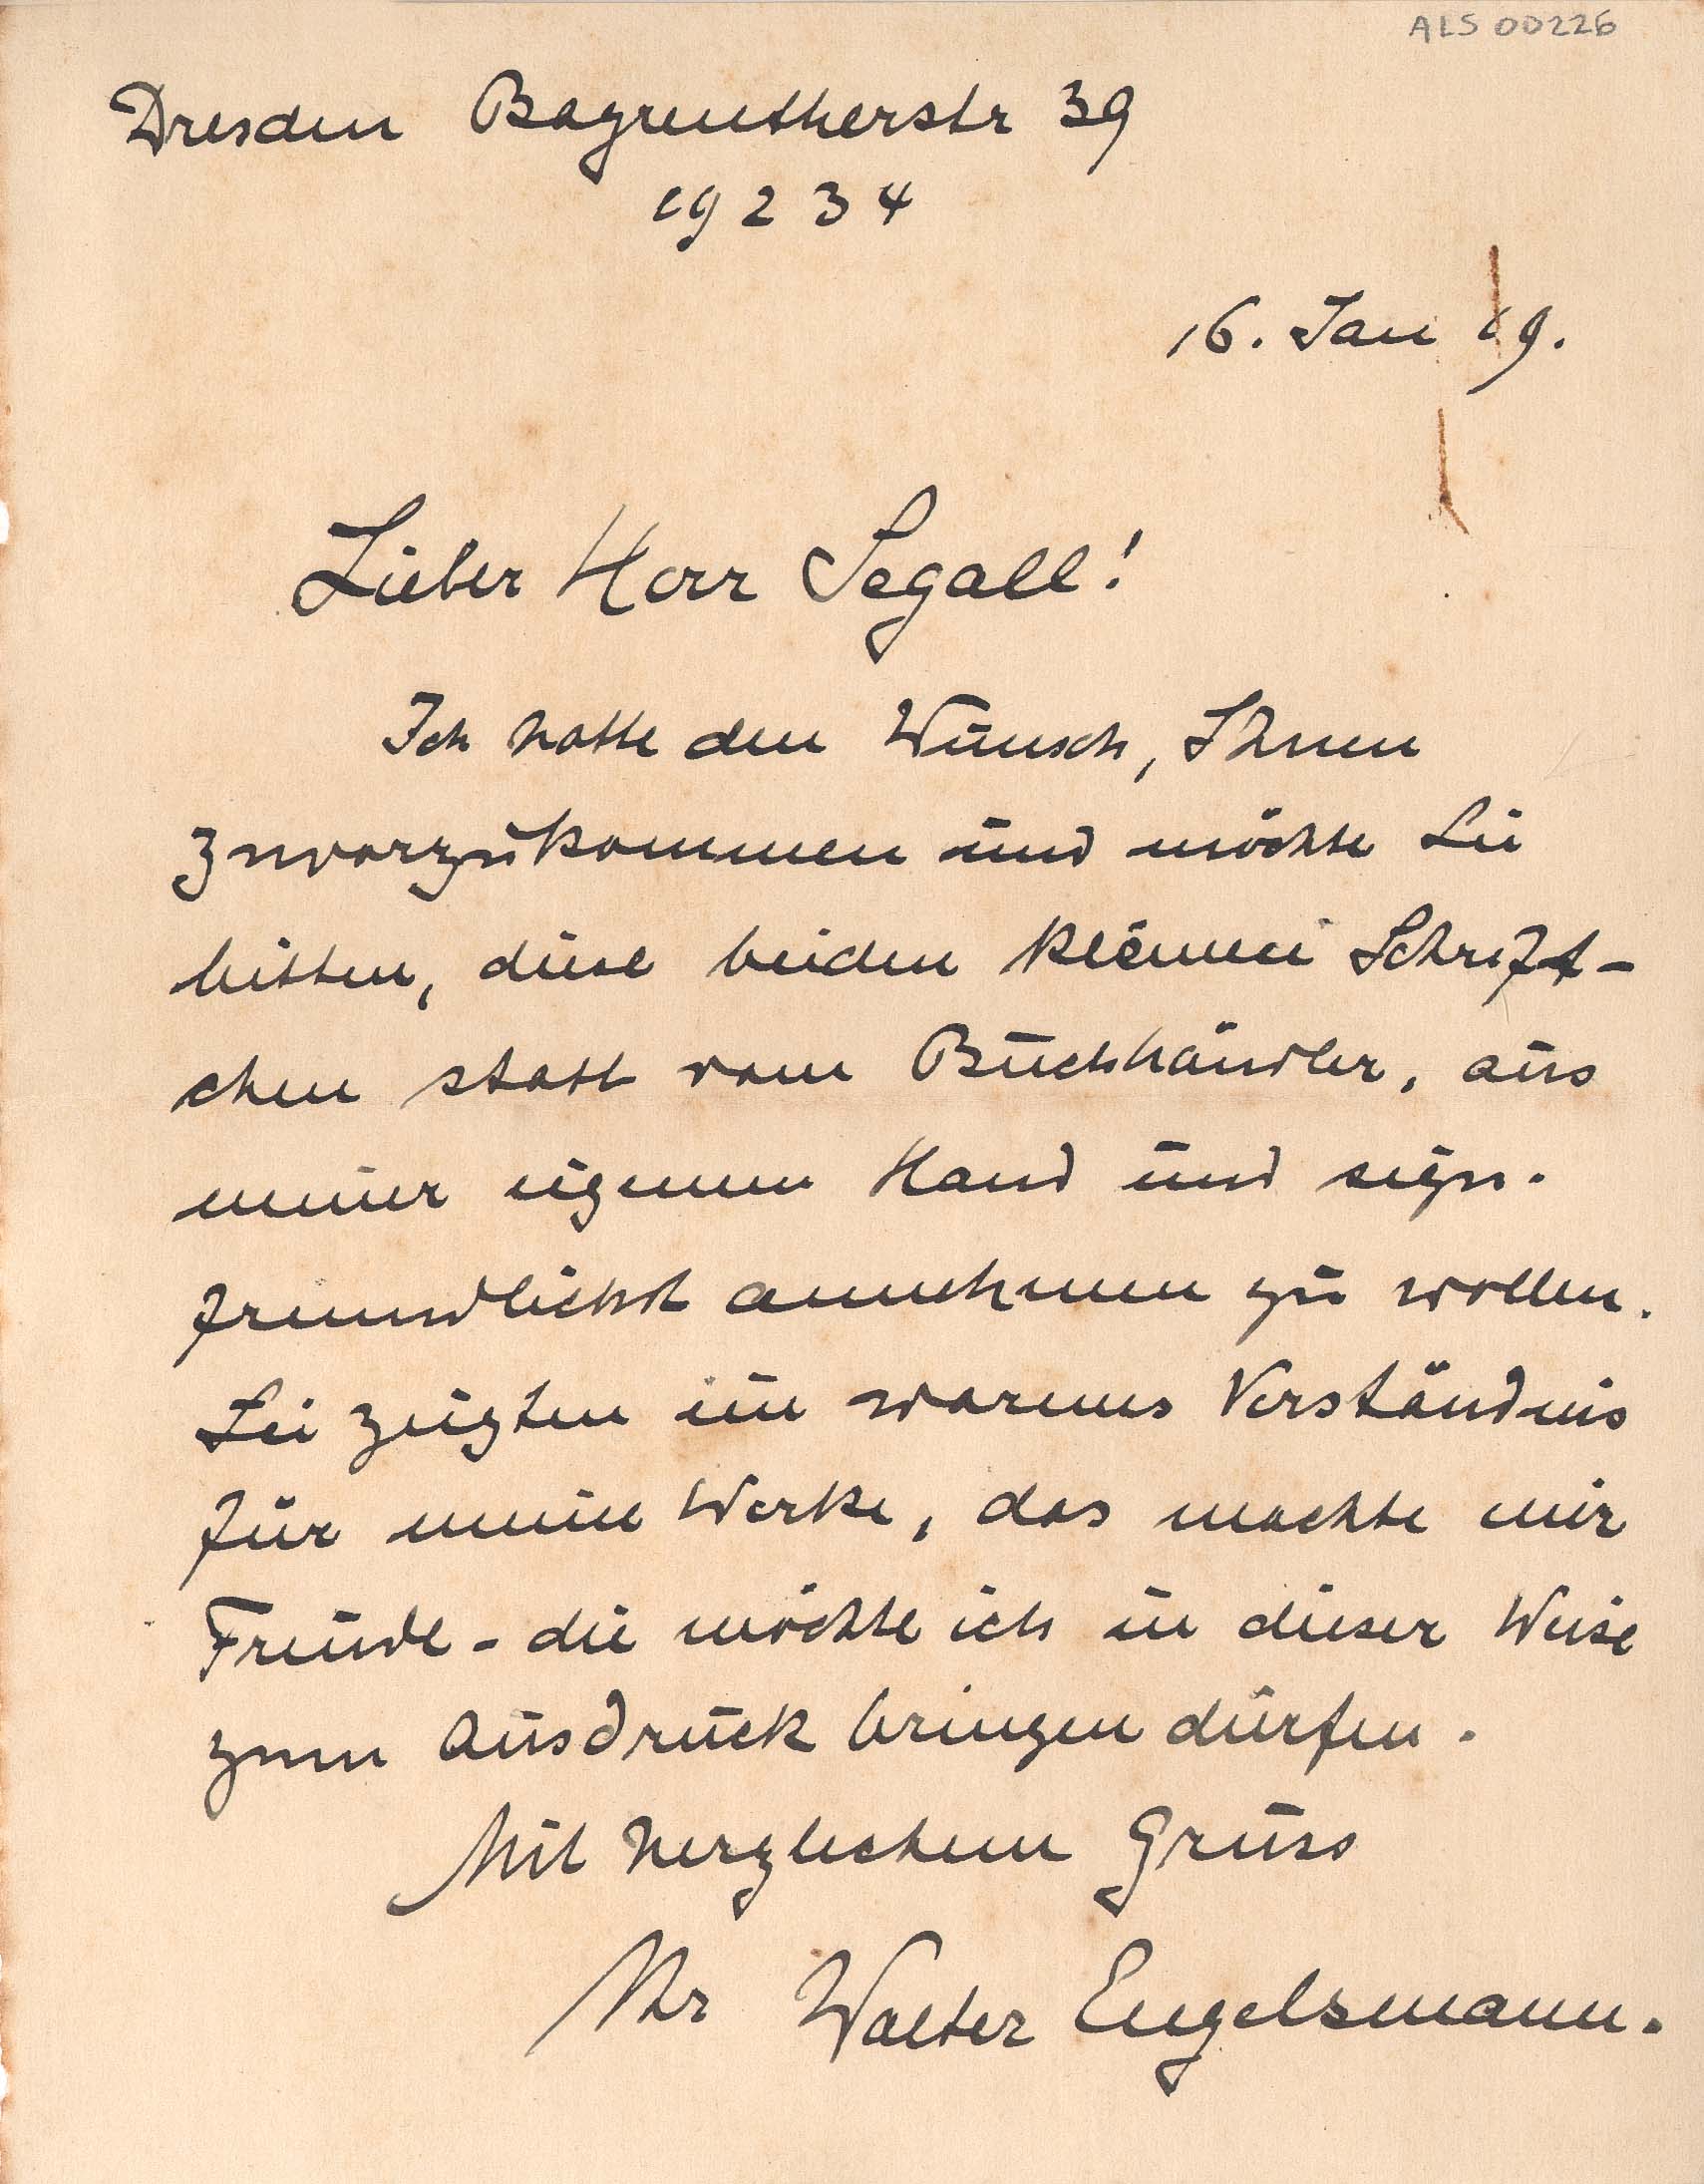 ALS 00226
Dresden Bayreutherstr 39
19234
16. Jan 19.
Lieber Herr Segall!
Ich hatte den Wunsch, Ihnen
zuvorzukommen und möchte Sie
bitten, diese beiden kleinen Schrift-
chen statt vom Buchhändler, aus
meiner eigenen Hand und sign.
freundlichst annehmen zu wollen.
Sie zeigten ein warmes Verständnis
für meine Werke, das machte mir
Freude - die möchte ich in dieser Weise
zum Ausdruck bringen dürfen.
Mit herzlichem Gruss
Ihr Walter Engelsmann.